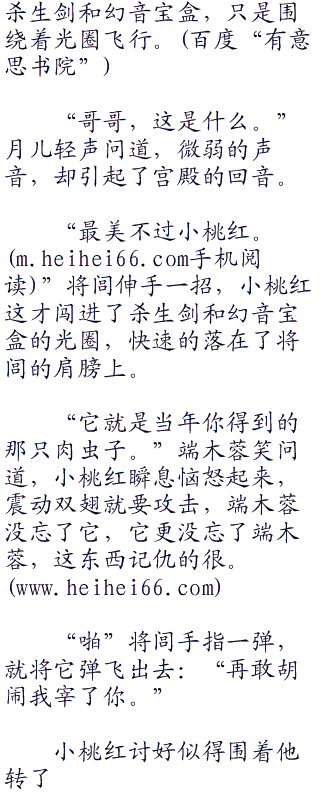 杀生剑和幻音宝盒，只是围
绕着光圈飞行。(百度“有意
思书院”)
“哥哥，这是什么。”
月儿轻声问道，微弱的声
音，却引起了宫殿的回音。
“最美不过小桃红。
(m.heihei66.com手机阅
读)”将闾伸手一招，小桃红
这才闯进了杀生剑和幻音宝
盒的光圈，快速的落在了将
闾的肩膀上。
“它就是当年你得到的
那只肉虫子。”端木蓉笑问
道，小桃红瞬息恼怒起来，
震动双翅就要攻击，端木蓉
没忘了它，它更没忘了端木
蓉，这东西记仇的很。
(www.heihei66.com)
“啪”将闾手指一弹，
就将它弹飞出去：“再敢胡
闹我宰了你。”
小桃红讨好似得围着他
转了